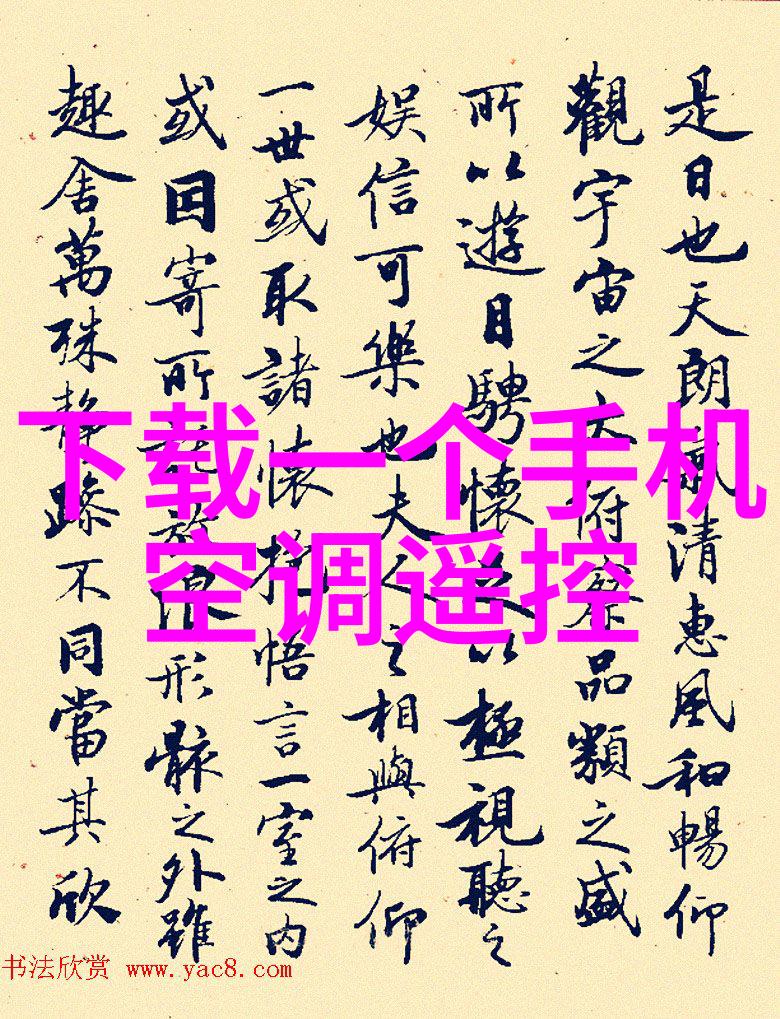 是日也天朗氣清惠風和暢仰
觀宇宙之大俯察品類之盛
所以遊目騁懷足以極視聽之
娛信可樂也夫人之相與俯仰
一世或取諸懷抱悟言一室之內
或因寄所託放浪形骸之外雖
趣舍萬殊靜躁不同當其欣
下载一个手机
空调遥控
书法欣赏 www.yac8.com